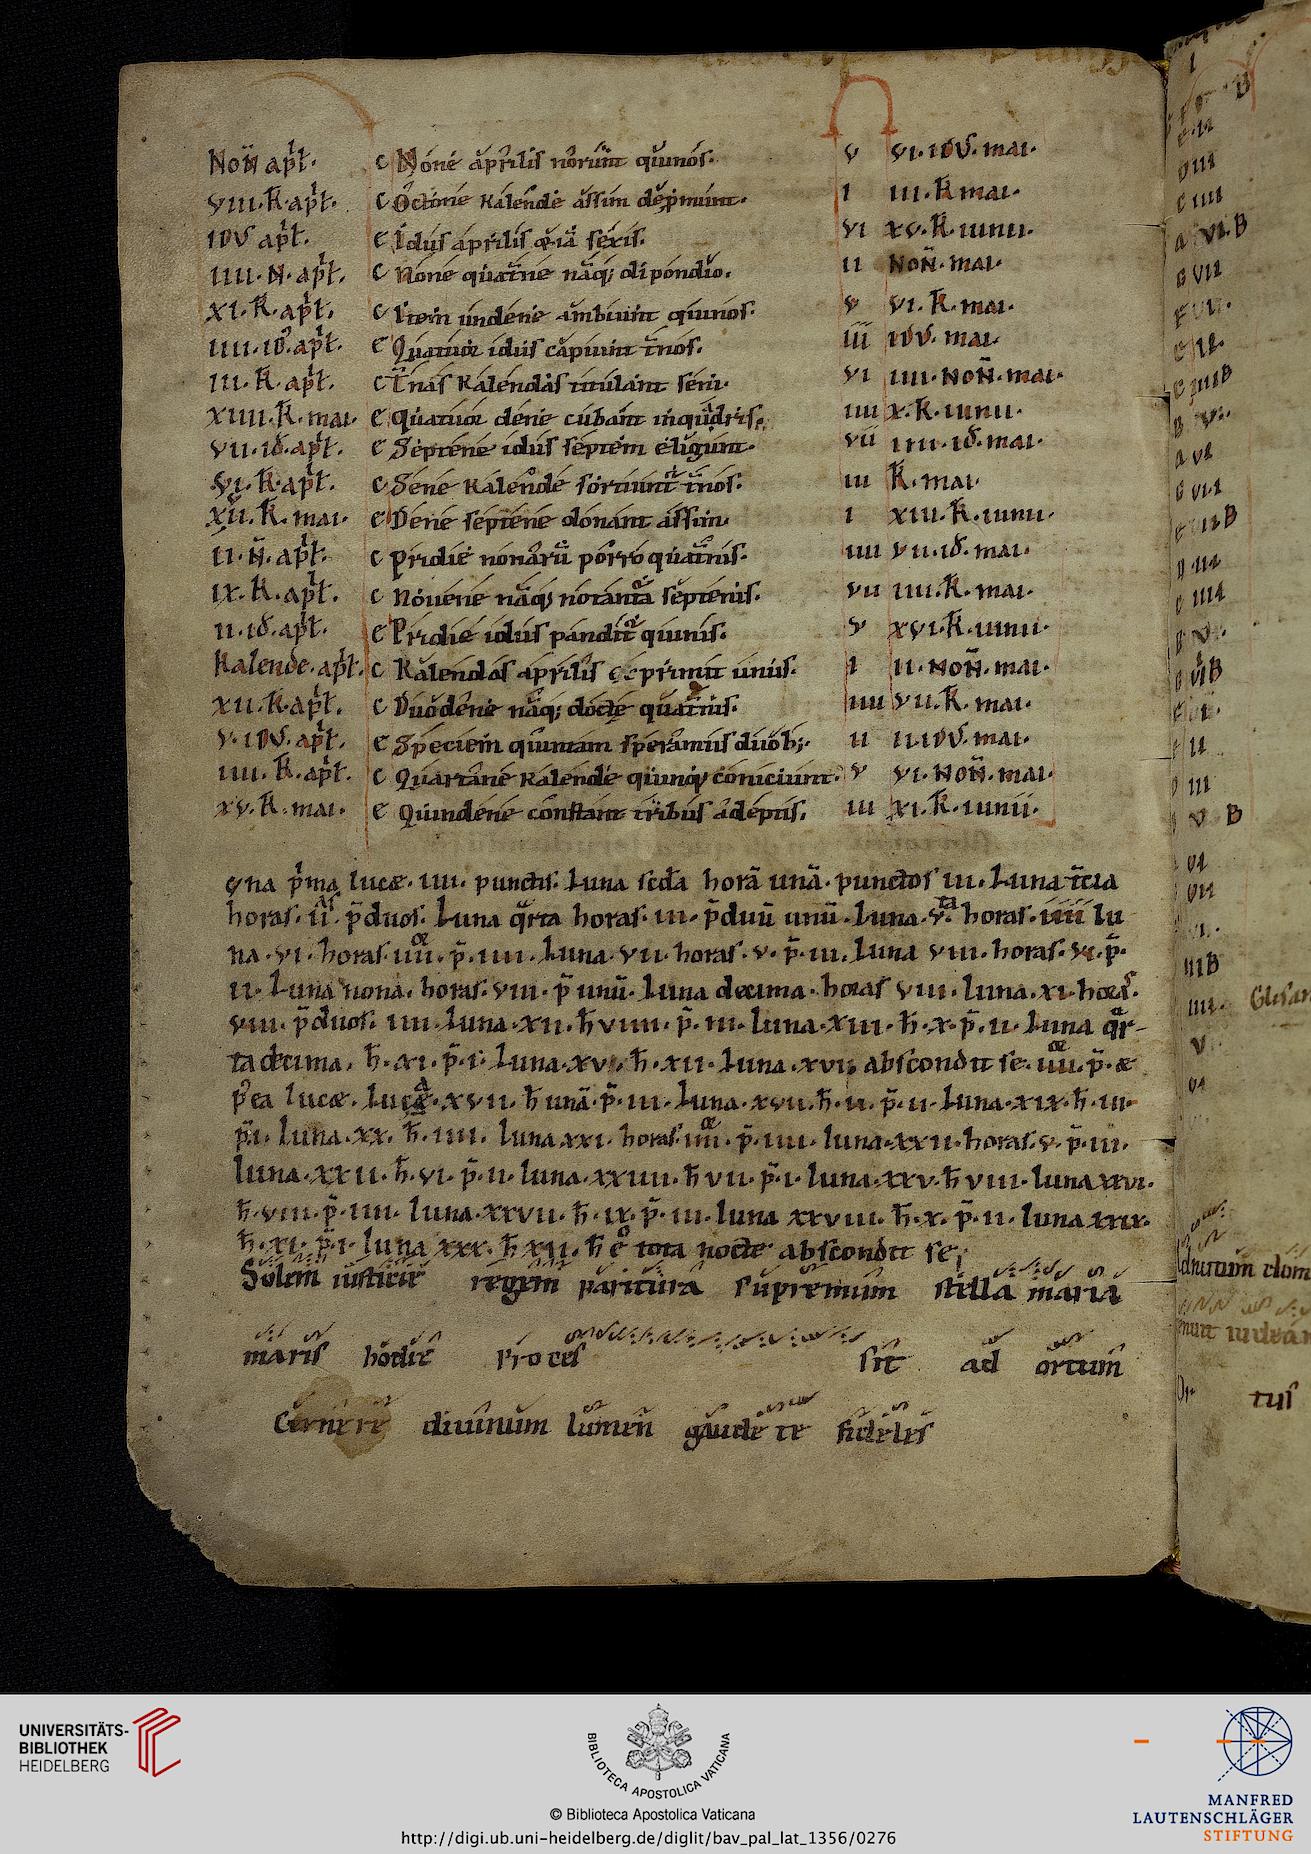 Non̄ apł. c Noné április nórunt quinós. v vi. idus. mai.
viii. K. apł. c Octóne kaléndé ássim depmunt. i iii. K mai.
idus apł. e Idus április séxis. vi xv. K. iunii.
iiii. N. apł. c None quat̄ne náq; dipondio. ii Non̄. mai.
xi. K. apł. c Item undéne ambiunt quinos. v vi. K. mai.
iiii. id. apł. e Quatuor idus cápiunt t̄nos. iii idus. mai.
iii. K. apł. c T̄nas kaléndas titulant séni. vi iiii. Non̄. mai.
xiiii. K. mai. e quatuor dene cubant in quádris. iiii x. K. iunii.
vii. id. apł. e Septéne idus séptem éligunt. vii iiii. id. mai.
vi. K. apł. c Séne kalénde sortiunt t̄nos. iii K. mai.
xvii. K. mai. e Dene septéne donant ássim. i xiii. K. iunii.
ii. N̄. apł. c Pridie nonarū porro quat̄nis. iiii vii. id. mai.
ix. K. apł. c Nouéne náq; notánt séptenis. vii iiii. K. mai.
ii. id. apł. e Pridie idus pandit quinis. v xvi. K. iunii.
Kalende. apł. c Kaléndas aprilis deprimit unus. i ii. Non̄. mai.
xii. K. apł. c Duodéne náq; docte quat̄nis. iiii vii. K. mai.
v. idus. apł. e Speciem quintam sperámus duob;. ii ii. idus. mai.
iiii. K. apł. c Quartáne kalénde quinq; coniciunt. v vi. Non̄. mai.
xv. K. mai. e Quindéne constant tribus ádeptis. iii xi. K. iunii.
una p̄ma lucæ. iiii. punctis. Luna scda horā unā. punctos iii. Luna t̄cia
horas. ii. p̄ duos. Luna q̄rta horas. iii. p̄ unū. Luna. v. horas. iiii lu
na. vi. horas. iiii. p̄. iiii. Luna. vii. horas. v. p̄. iii. Luna viii. horas. vi. p̄.
ii. Luna nona. horas. viii. p̄ unū. Luna decima. horas viii. luna. xi. horas.
viii. p̄ duos. iiii. Luna. xii. h̄ viiii. p̄. iii. luna. xiii. h̄. x. p̄. ii. Luna q̄r-
ta decima. h̄. xi. p̄. i. Luna. xv. h̄. xii. Luna. xvi. abscondit se. iiii. p̄. æ
p̄ea lucæ. Lucæ. xvii. h̄ unā. p̄. iii. Luna. xvii. h̄. ii. p̄. ii. Luna. xix. h̄. iii.
p̄. i. Luna. xx. h̄. iiii. luna. xxi. horas. iiii. p̄. iiii. luna. xxii. horas. v. p̄. iii.
luna. xxiii. h̄. vi. p̄. ii. luna. xxiiii. h̄ vii. p̄. i. luna. xxv. h̄ viii. luna xxvi.
h̄. viii. p̄. iiii. luna. xxvii. h̄. ix. p̄. iii. luna xxviii. h̄. x. p̄. ii. luna xxix.
h̄. xi. p̄. i. luna xxx. h̄ xii. h̄ ē tota nocte abscondit se;
Solem iusticiē regem paritura supremum stella maria
maris hodie Proces sit ad ortum
Cernere diuinum lumen gaudete fideles
UNIVERSITÄTS-
BIBLIOTHEK
HEIDELBERG
BIBLIOTECA APOSTOLICA VATICANA
© Biblioteca Apostolica Vaticana
http://digi.ub.uni-heidelberg.de/diglit/bav_pal_lat_1356/0276
MANFRED
LAUTENSCHLÄGER
STIFTUNG